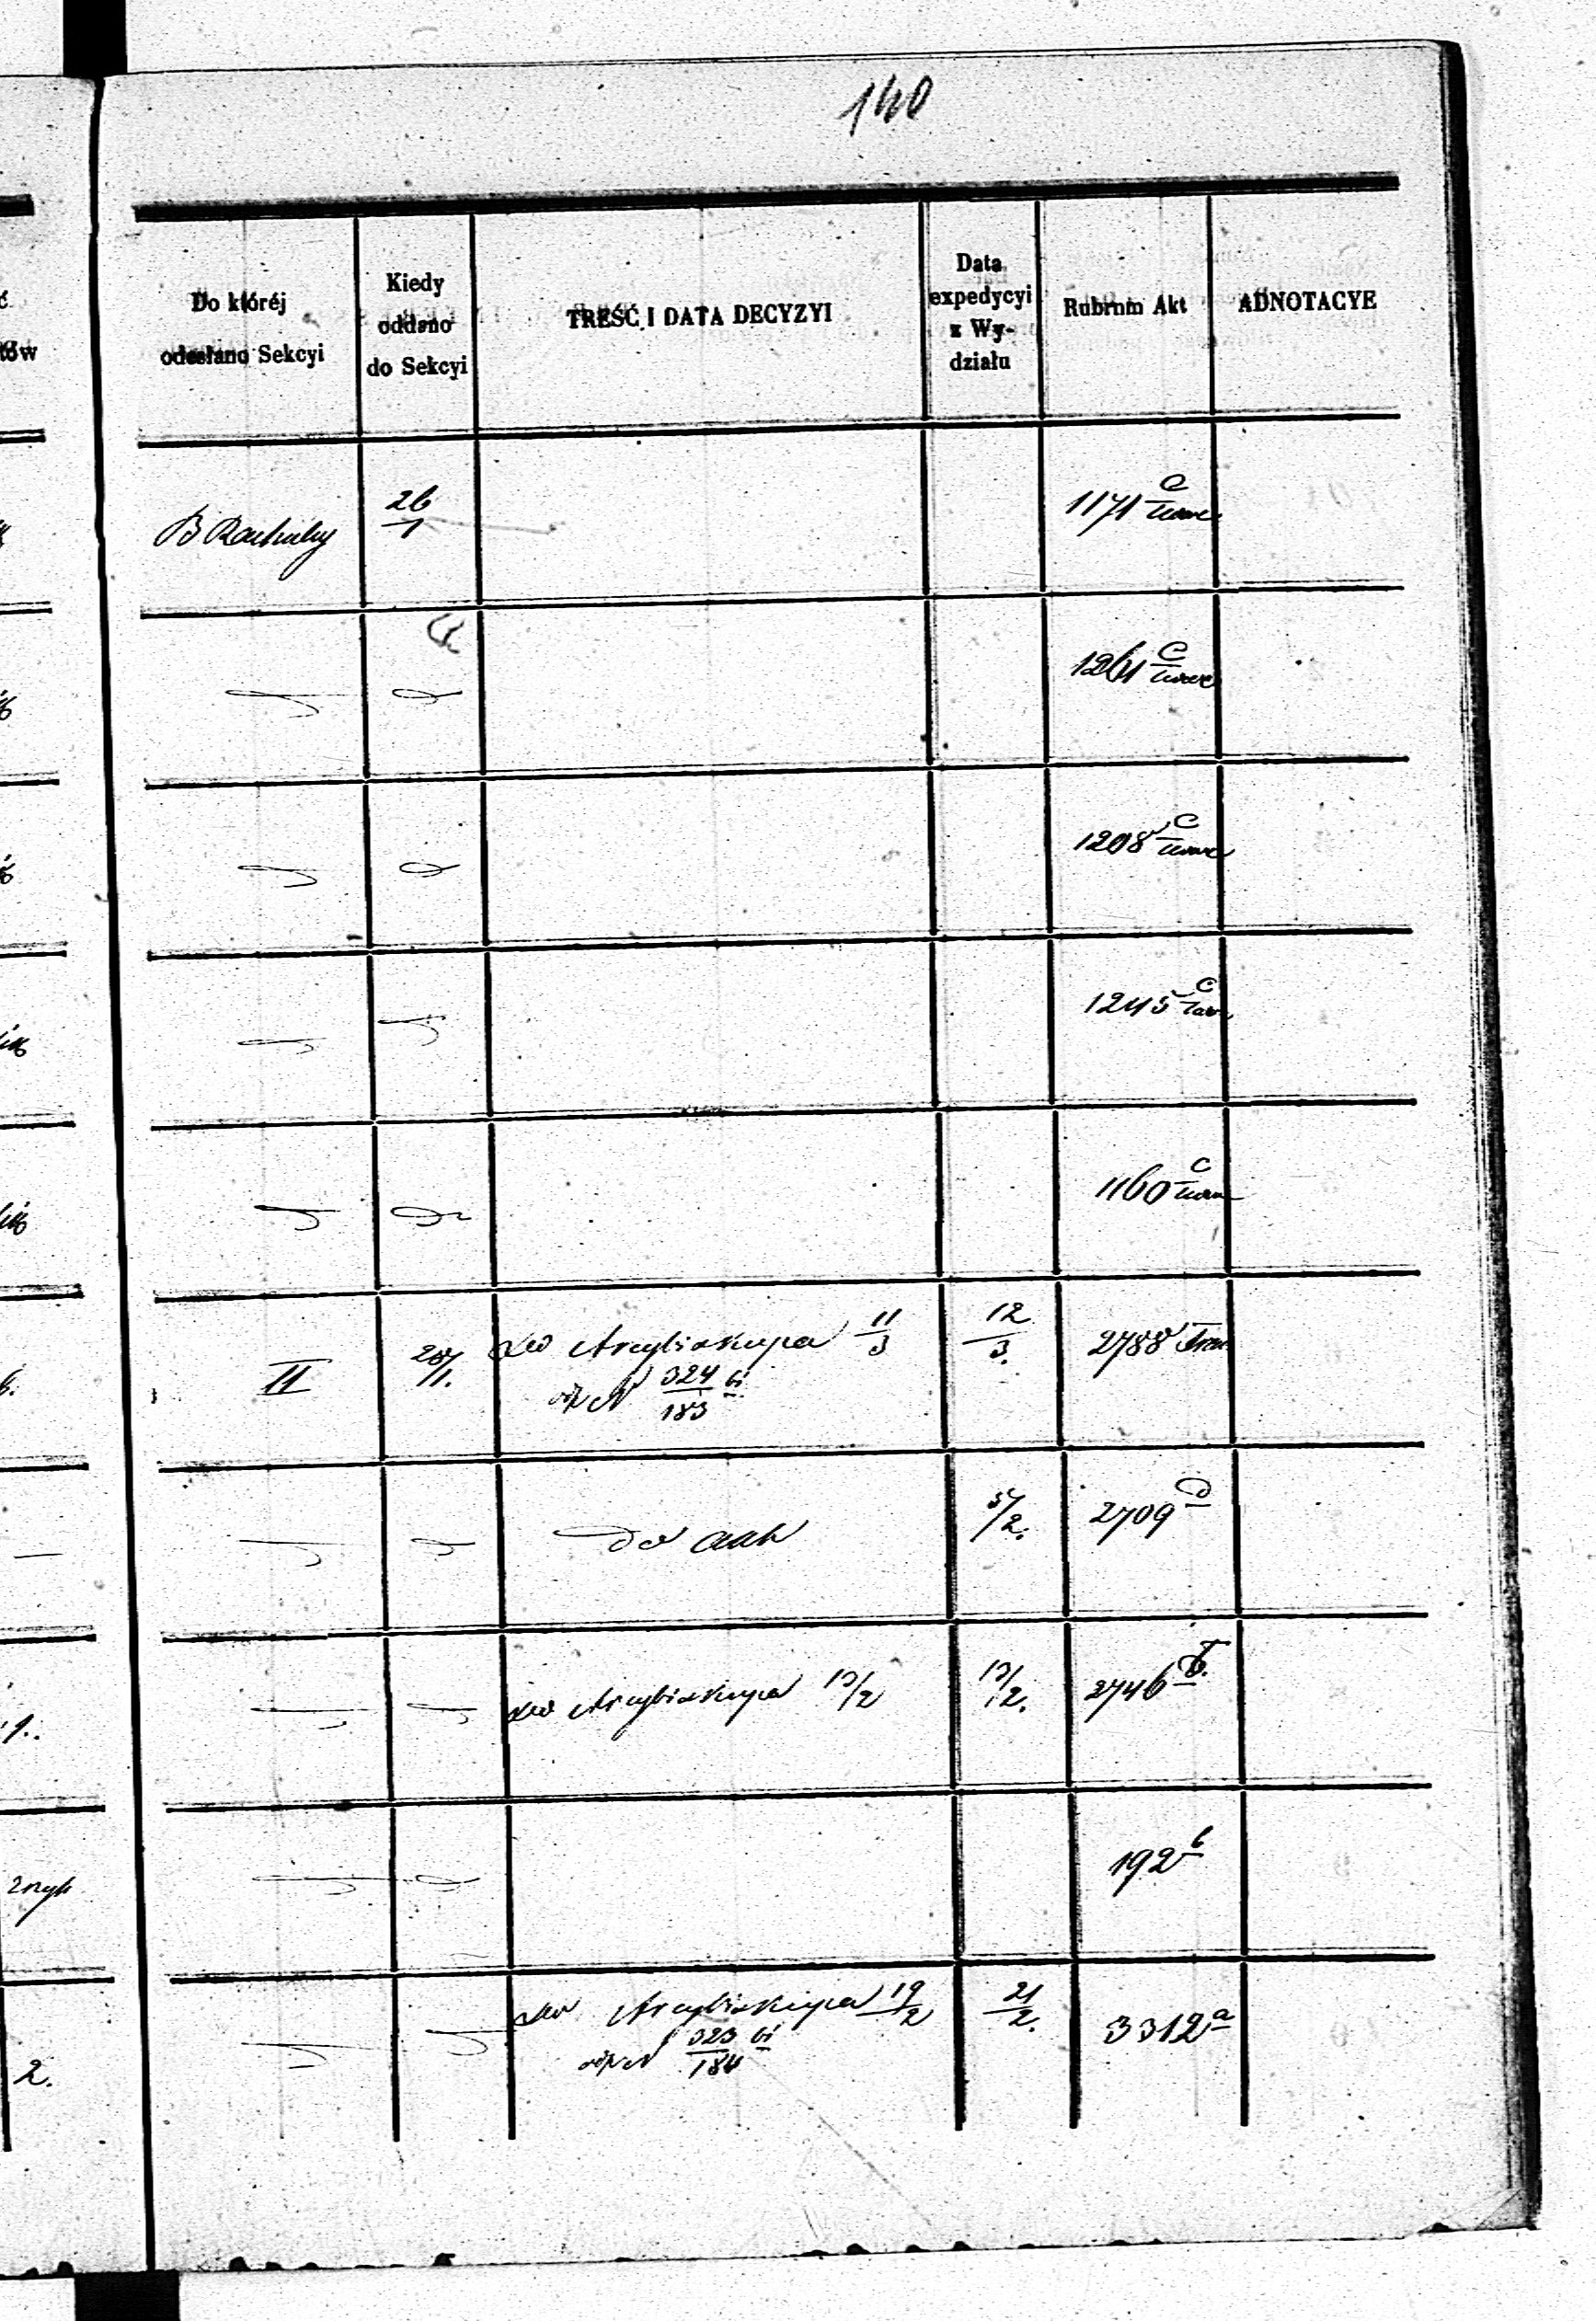 140
Do któréj
odesłano Sekcyi
Kiedy
oddano
do Sekcyi
TREŚĆ I DATA DECYZYI
Data
expedycyi
z Wy-
działu
Rubrum Akt
ADNOTACYE
tów
B Rachuby
26/1
1171 C
C
1208 C
1245 C
1160 C
II
/1.
Do Arcybiskupa 11/3
N 324/183
12/3.
2788
Do Akt
5/2.
2709 D
Do Arcybiskupa 13/2
13/2.
2746
192 b
Do Arcybiskupa 19/2
N 323/184
21/2.
3312 a
2.